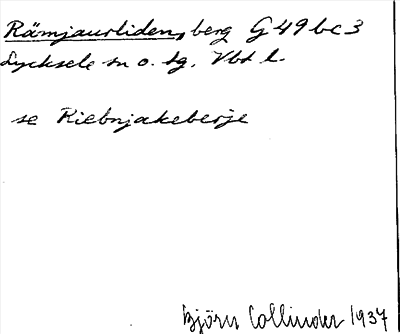 Rämjaurliden, berg G49bc3
Lycksele sn o. tg. Vbt l.
se Riebnjakeberje
Björn Collinder 1937